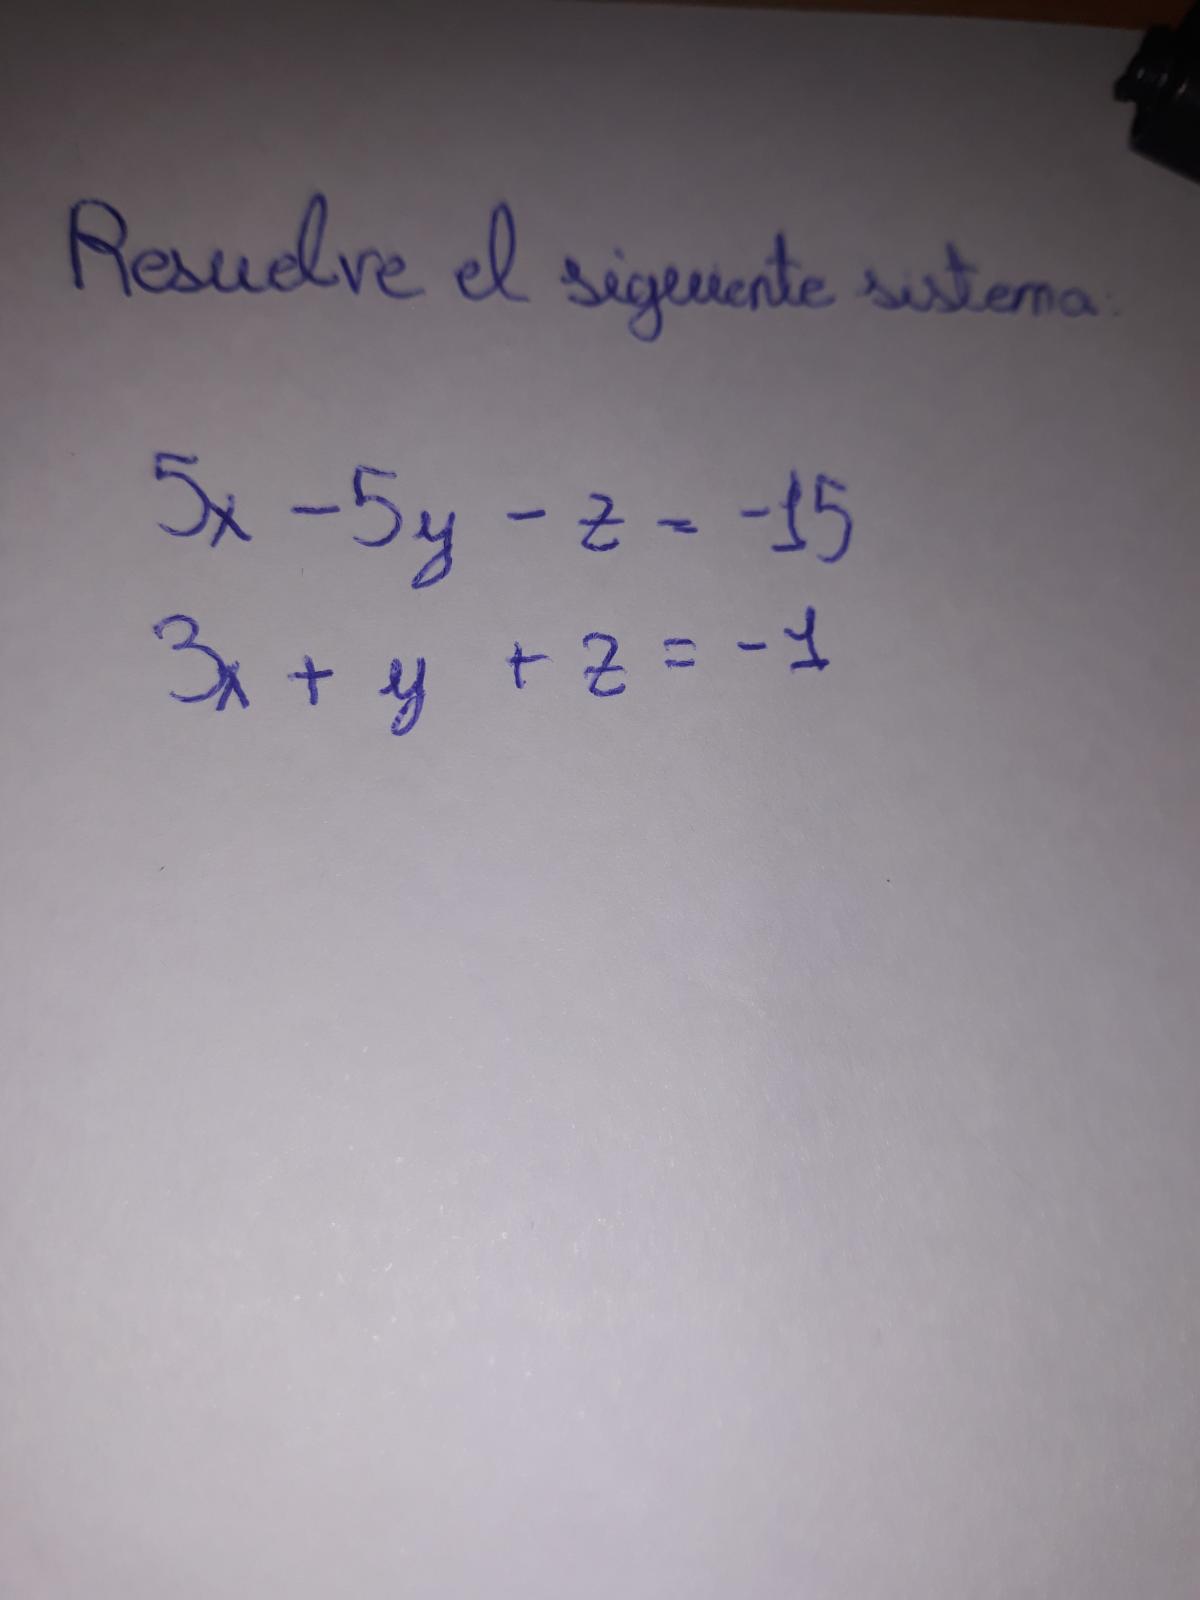 Resuelve el siguiente sistema:
5x - 5y - z = -15
3x + y + z = -1